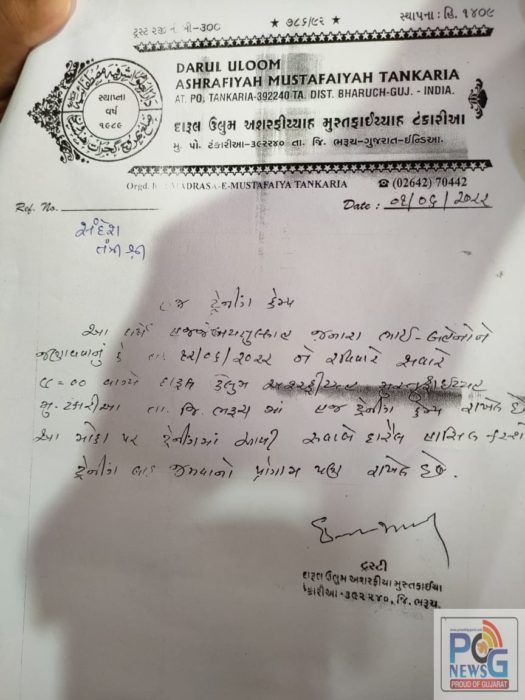 ટ્રસ્ટ રજી નં. બી-300
★ ૭૮૬/૯૨ ★
સ્થાપના : હિ. ૧૪૦૯
સ્થાપના
વર્ષ
૧૯૮૯
DARUL ULOOM
ASHRAFIYAH MUSTAFAIYAH TANKARIA
AT. PO. TANKARIA-392240 TA. DIST. BHARUCH-GUJ. - INDIA.
દારૂલ ઉલુમ અશરફીય્યાહ મુસ્તફાઈય્યાહ ટંકારીઆ
મુ. પો. ટંકારીઆ-૩૯૨૨૪૦ તા. જિ. ભરૂચ-ગુજરાત-ઈન્ડિઆ.
Orgd. MADRASA-E-MUSTAFAIYA TANKARIA
☎ (02642) 70442
Ref. No.
Date : ૦૧/૦૬/૨૦૨૨
સંદેશ
તંત્રી શ્રી
હજ ટ્રેનીંગ કેમ્પ
આ વર્ષે હજ્જે બયતુલ્લાહ જનારા ભાઈ-બહેનોને
જણાવવાનું કે તા. ૧૨/૦૬/૨૦૨૨ ને રવિવારે સવારે
૯=૦૦ વાગ્યે દારૂલ ઉલુમ અશરફીય્યાહ મુસ્તફાઈય્યાહ
મુ. ટંકારીઆ તા. જિ. ભરૂચ માં હજ ટ્રેનીંગ કેમ્પ રાખેલ છે
આ મોકા પર ટ્રેનીંગમાં આવી સવાબે દારૈન હાસિલ કરશો
ટ્રેનીંગ બાદ જમવાનો પ્રોગ્રામ પણ રાખેલ છે.
ટ્રસ્ટી
દારૂલ ઉલુમ અશરફીયા મુસ્તફાઈયા
ટંકારીઆ-૩૯૨૨૪૦, જિ. ભરૂચ.
PCG
NEWS
PROUD OF GUJARAT